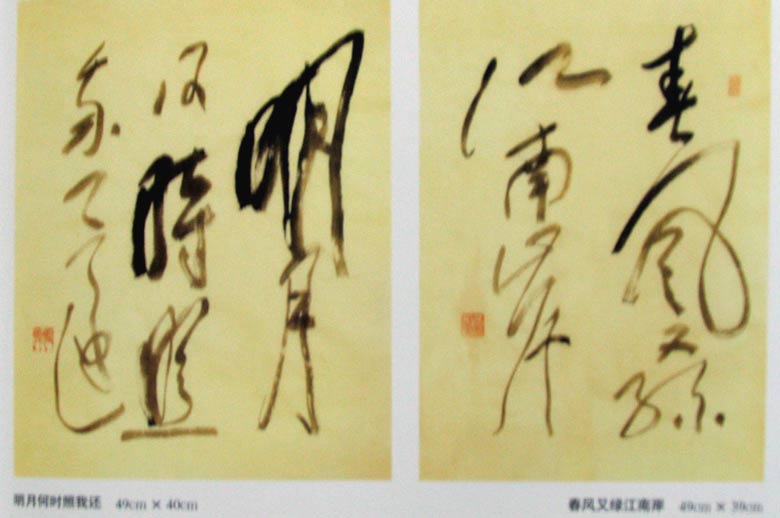 明月
何時照
我
春風又綠
江南岸
明月何时照我还 49cm × 40cm
春风又绿江南岸 49cm × 39cm